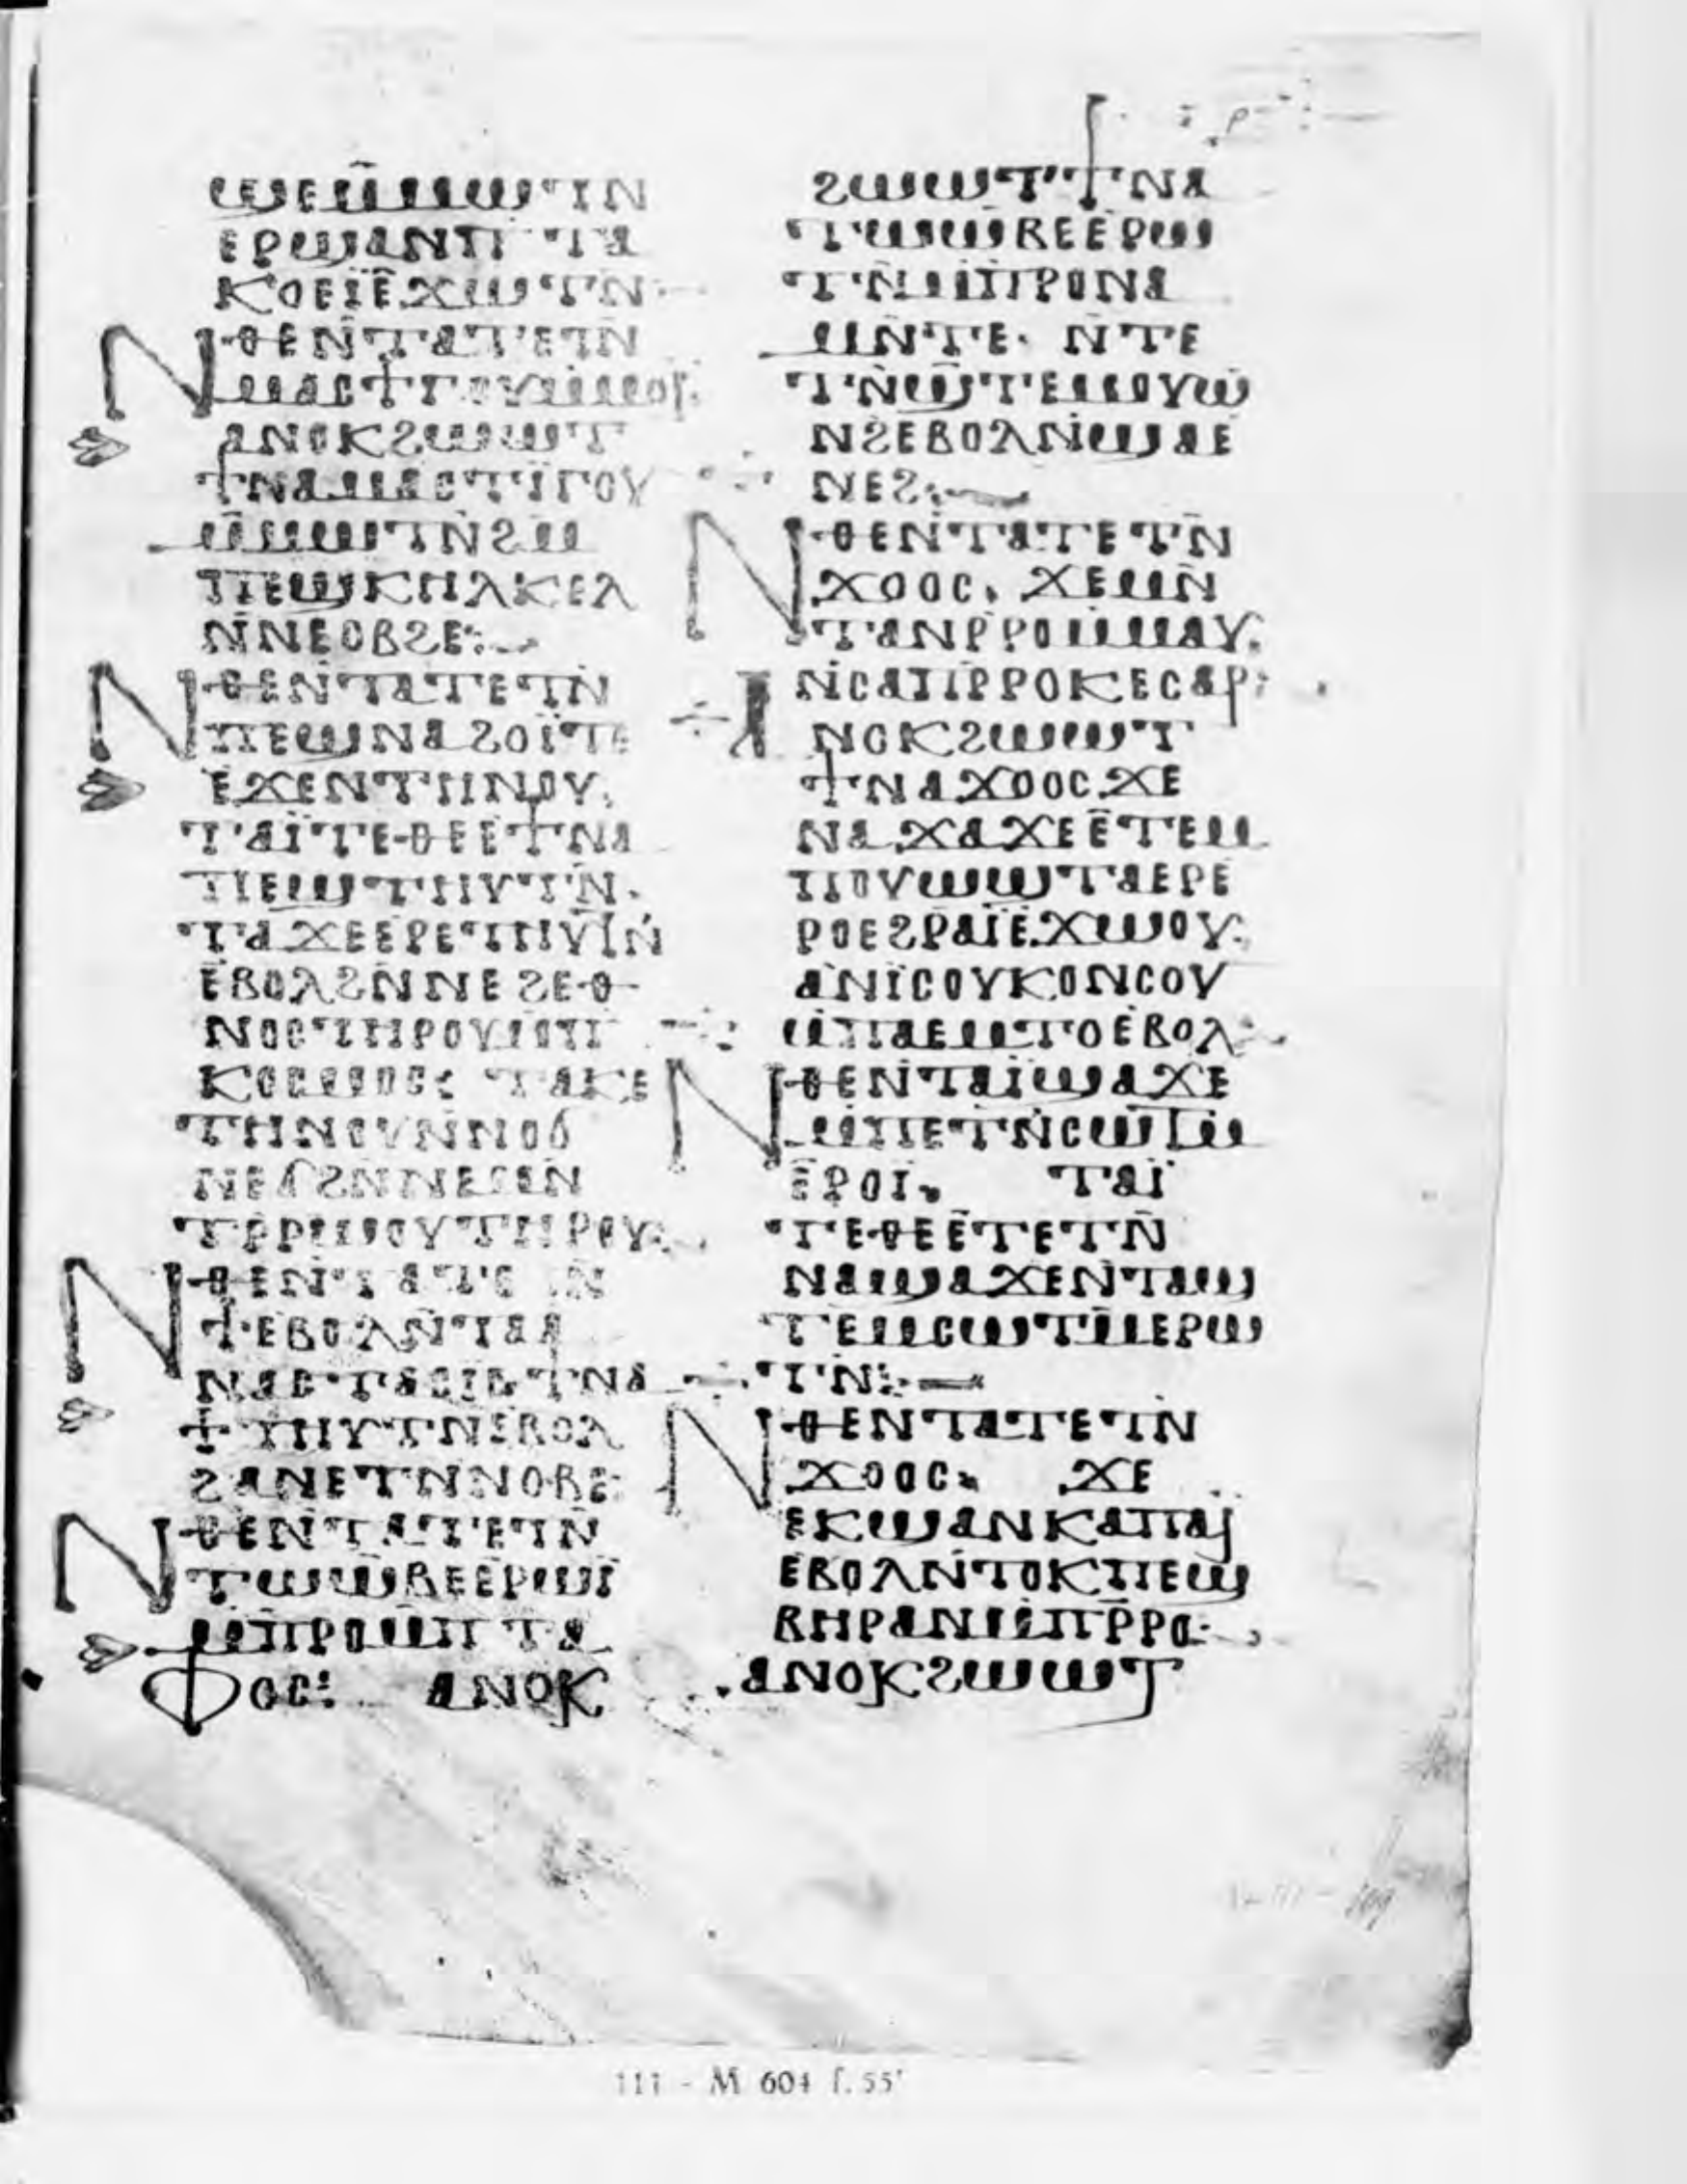 ϣⲉⲙ̄ⲙⲱⲧⲛ
ⲉⲣϣⲁⲛⲡ ⲧⲁ
ⲕⲟⲉⲓⲉ̄ϫⲱⲧⲛ·
ⲛⲑⲉⲛ̄ⲧⲁⲧⲉⲧⲛ̄
ⲙⲁⲥϯⲅⲟⲩⲙ̄ⲙⲟⲓ̈·
ⲁⲛⲟⲕϩⲱⲱⲧ
ϯⲛⲁⲙⲁⲥⲧⲓ̈ⲅⲟⲩ
ⲙ̄ⲙⲱⲧⲛ̄ϩⲙ
ⲡⲉϣⲕⲏⲗⲕⲉⲗ
ⲛ̄ⲛⲉⲟⲃϩⲉ:
ⲛⲑⲉⲛ̄ⲧⲁⲧⲉⲧⲛ̄
ⲡⲉϣⲛⲁϩⲟⲓ̈ⲧⲉ
ⲉ̄ϫⲉⲛⲧⲏⲛⲟⲩ·
ⲧⲁⲓ̈ⲧⲉⲑⲉⲉ̄ϯⲛⲁ
ⲡⲉϣⲧⲏⲩⲧⲛ̄·
ⲧⲁϫⲉⲉ̄ⲣⲉⲧⲏⲩⲧⲛ̄
ⲉ̄ⲃⲟⲗϩⲛ̄ⲛⲉϩⲉⲑ
ⲛⲟⲥⲧⲏⲣⲟⲩⲙ̄ⲡ
ⲕⲟⲥⲙⲟⲥ: ⲧⲁⲕⲉ
ⲧⲏⲛⲟⲩⲛ̄ⲛⲟϭ
ⲛⲉϭϩⲛ̄ⲛⲉⲙⲛ̄
ⲧⲣ̄ⲣⲱⲟⲩⲧⲏⲣⲟⲩ:
ⲛⲑⲉⲛ̄ⲧⲁⲧⲉⲧⲛ̄
ϯⲉⲃⲟⲗⲛ̄ⲧⲁⲁ
ⲛⲁⲥⲧⲁⲥⲓⲥϯⲛⲁ
ϯⲧⲏⲩⲧⲛⲉ̄ⲃⲟⲗ
ϩⲁⲛⲉⲧⲛ̄ⲛⲟⲃⲉ:
ⲛⲑⲉⲛ̄ⲧⲁⲧⲉⲧⲛ̄
ⲧⲱⲱⲃⲉⲉ̄ⲣⲱⲓ̈
ⲙ̄ⲡⲣⲟⲙ̄ⲡⲧⲁ
ⲫⲟⲥ: ⲁⲛⲟⲕ
ϩⲱⲱⲧϯⲛⲁ
ⲧⲱⲱⲃⲉⲉ̄ⲣⲱ
ⲧⲛ̄ⲙ̄ⲡⲣⲟⲛⲁ
ⲙⲛ̄ⲧⲉ· ⲛ̄ⲧⲉ
ⲧⲛ̄ϣ̄ⲧⲉⲙⲟⲩⲱ
ⲛϩⲉⲃⲟⲗⲛ̄ϣⲁⲉ
ⲛⲉϩ:
ⲛⲑⲉⲛ̄ⲧⲁⲧⲉⲧⲛ̄
ϫⲟⲟⲥ· ϫⲉⲙⲛ̄
ⲧⲁⲛⲣ̄ⲣⲟⲙ̄ⲙⲁⲩ·
ⲛ̄ⲥⲁⲡⲣ̄ⲣⲟⲕⲉⲥⲁⲣ:
ⲁⲛⲟⲕϩⲱⲱⲧ
ϯⲛⲁϫⲟⲟⲥϫⲉ
ⲛⲁϫⲁϫⲉⲉ̄ⲧⲉⲙ
ⲡⲟⲩⲱϣⲧⲁⲉⲣⲉ
ⲣⲟⲉϩⲣⲁⲓ̈ⲉ̄ϫⲱⲟⲩ·
ⲁⲛⲓ̈ⲥⲟⲩⲕⲟⲛⲥⲟⲩ
ⲙ̄ⲡⲁⲉⲙⲧⲟⲉ̄ⲃⲟⲗ:
ⲛⲑⲉⲛ̄ⲧⲁⲓ̈ϣⲁϫⲉ
ⲙ̄ⲡⲉⲧⲛ̄ⲥⲱⲧⲙ̄
ⲉ̄ⲣⲟⲓ̈· ⲧⲁⲓ̈
ⲧⲉⲑⲉⲉ̄ⲧⲉⲧⲛ̄
ⲛⲁϣⲁϫⲉⲛ̄ⲧⲁϣ
ⲧⲉⲙⲥⲱⲧⲙ̄ⲉⲣⲱ
ⲧⲛ̄:
ⲛⲑⲉⲛⲧⲁⲧⲉⲧⲛ
ϫⲟⲟⲥ· ϫⲉ
ⲉⲕϣⲁⲛⲕⲁⲡⲁⲓ̈
ⲉⲃⲟⲗⲛ̄ⲧⲟⲕⲡⲉϣ
ⲃⲏⲣⲁⲛⲙ̄ⲡⲣ̄ⲣⲟ·
ⲁⲛⲟⲕϩⲱⲱⲧ
111 - M 604 f. 55ʳ